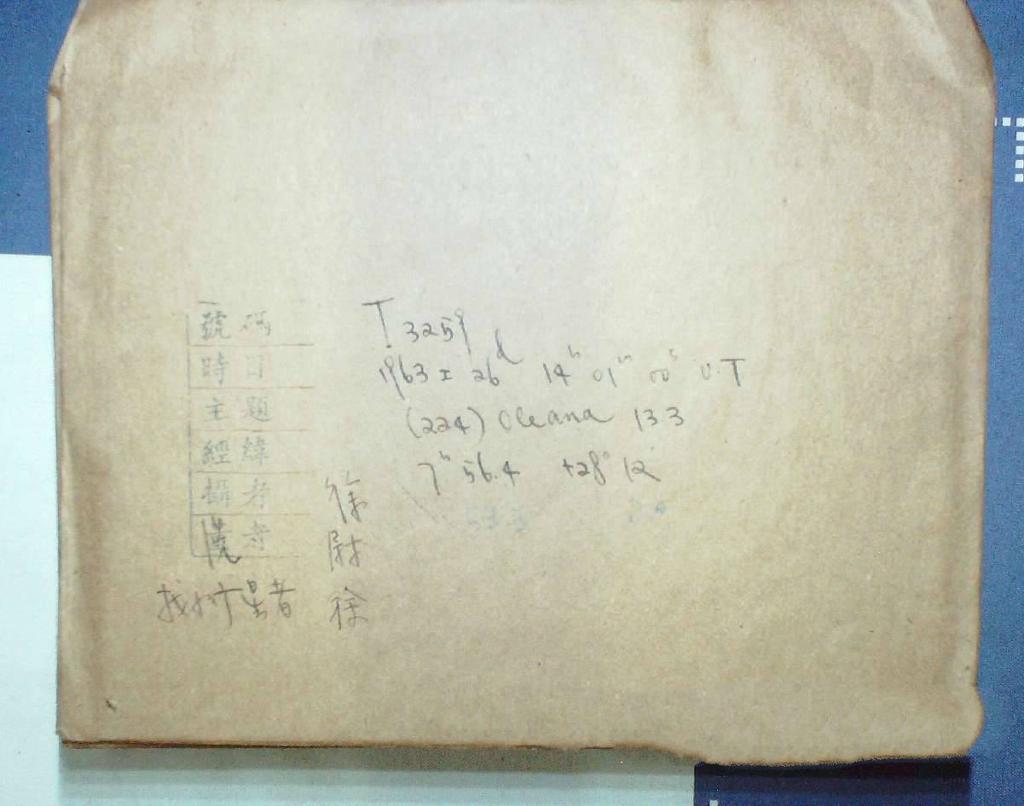 號碼 T 3259
時日 1963 X 26ᵈ 14ʰ 01ᵐ 00ˢ U.T
主題 (224) Oceana 13.3
經緯 7ʰ 56.4 +28° 12'
攝者 徐
洗者 尉
找行星者 徐